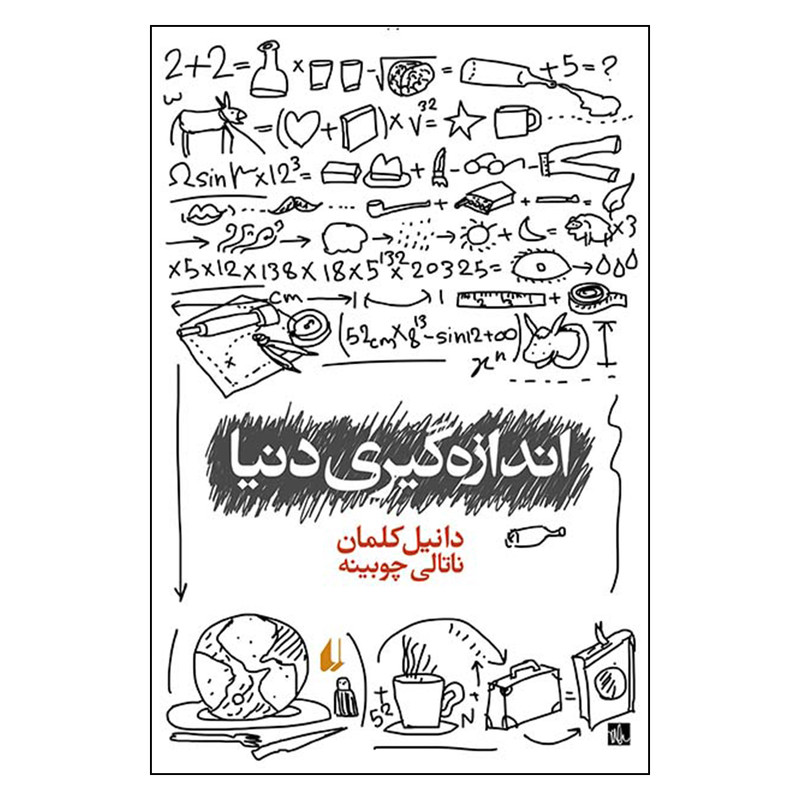 2+2= × - √ = +5=?
=( + )× √32= 
Ω sin × 12³= + - -
+ + =
+ = ×3
×5×12×138×18×5¹³²×20325=
cm 1 1 +
(52cm×8¹³-sin12+∞)
xⁿ
x
اندازه‌گیری دنیا
دانیل کلمان
ناتالی چوبینه
+ 52 N + =